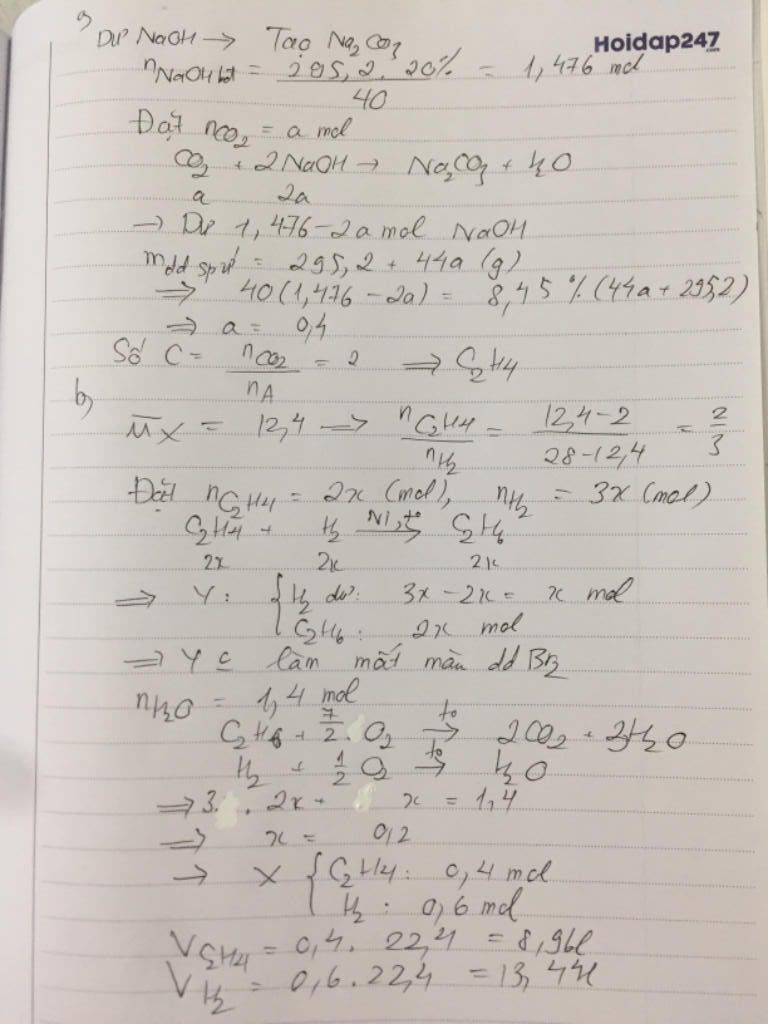 a)
Dư NaOH → Tạo Na₂CO₃
Hoidap247
.com
nNaOH bđ = 295,2 . 20% / 40 = 1,476 mol
Đặt nCO₂ = a mol
CO₂ + 2NaOH → Na₂CO₃ + H₂O
a 2a
→ Dư 1,476-2a mol NaOH
mdd spứ = 295,2 + 44a (g)
⇒ 40(1,476-2a) = 8,45%(44a+295,2)
⇒ a = 0,4
Số C = nCO₂ / nA = 2 ⇒ C₂H₄
b)
M̅X = 12,4 → nC₂H₄ / nH₂ = 12,4-2 / 28-12,4 = 2/3
Đặt nC₂H₄ = 2x (mol), nH₂ = 3x (mol)
C₂H₄ + H₂ Ni,to → C₂H₆
2x 2x 2x
⇒ Y: { H₂ dư: 3x-2x = x mol
C₂H₆: 2x mol
⇒ Y c làm mất màu dd Br₂
nH₂O = 1,4 mol
C₂H₆ + 7/2 O₂ to → 2CO₂ + 3H₂O
H₂ + 1/2 O₂ to → H₂O
⇒ 3. . 2x + x = 1,4
⇒ x = 0,2
→ X { C₂H₄: 0,4 mol
H₂: 0,6 mol
VC₂H₄ = 0,4. 22,4 = 8,96l
VH₂ = 0,6.22,4 = 13,44l